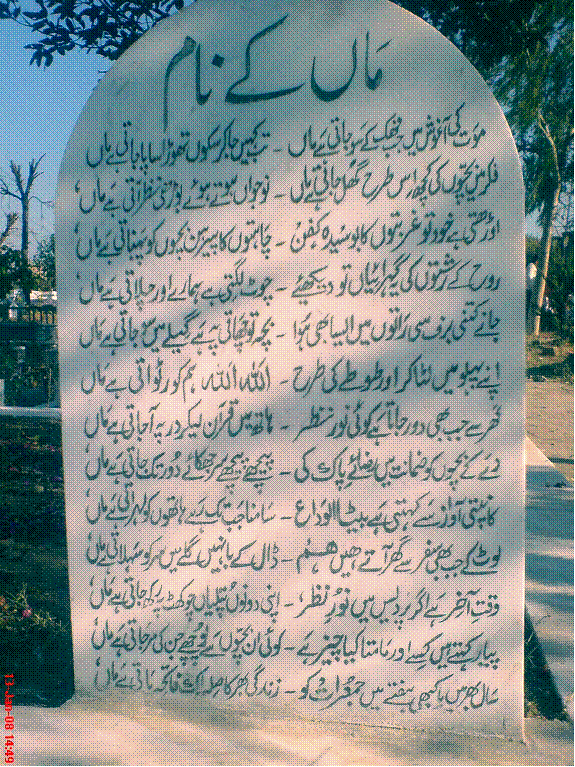 ماں کے نام
موت کی آغوش میں جب تھک کے سو جاتی ہے ماں - تب کہیں جا کر سکوں تھوڑا سا پا جاتی ہے ماں
فکر میں بچوں کی کچھ اس طرح گھل جاتی ہے ماں - نوجواں ہوتے ہوئے بوڑھی نظر آتی ہے ماں
اوڑھتی ہے خود تو غربتوں کا بوسیدہ کفن - چاہتوں کا پیرہن بچوں کو پہناتی ہے ماں
روح کے رشتوں کی گہرائیاں تو دیکھئے - چوٹ لگتی ہے ہمارے اور چلاتی ہے ماں
جانے کتنی برف سی راتوں میں ایسا بھی ہوا - بچہ تو چھاتی پہ ہے گیلے میں سو جاتی ہے ماں
اپنے پہلو میں لٹا کر اور طوطے کی طرح - اللہ اللہ ہم کو رٹواتی ہے ماں
گھر سے جب بھی دور جاتا ہے کوئی نور نظر - ہاتھ میں قرآن لیکر در پہ آ جاتی ہے ماں
دے کے بچوں کو ضمانت میں رضائے پاک کی - پیچھے پیچھے سر جھکائے دور تک جاتی ہے ماں
کانپتی آواز سے کہتی ہے بیٹا الوداع - سامنا جب تک رہے ہاتھوں کو لہراتی ہے ماں
لوٹ کے جب بھی سفر سے گھر آتے ہیں ہم - ڈال کے بانہیں گلے میں سر کو سہلاتی ہے ماں
وقتِ آخر ہے اگر پردیس میں نورِ نظر - اپنی دونوں پتلیاں چوکھٹ پہ رکھ جاتی ہے ماں
پیار کہتے ہیں کسے اور مامتا کیا چیز ہے - کوئی ان بچوں سے پوچھے جن کی مر جاتی ہے ماں
سال بھر میں یا کبھی ہفتے میں جمعرات کو - زندگی بھر کا صلہ اک فاتحہ پاتی ہے ماں
13-Jan-08 14:49